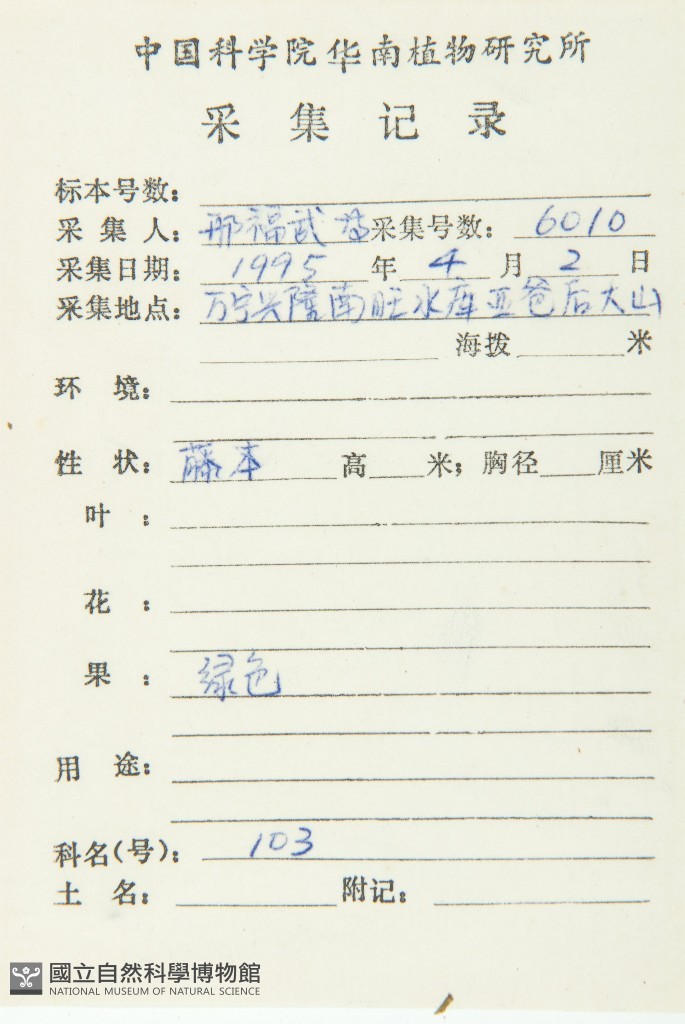 中国科学院华南植物研究所
采集记录
标本号数:
采集人: 邢福武 采集号数: 6010
采集日期: 1995 年 4 月 2 日
采集地点: 万宁兴隆南旺水库亚爸后大山
海拨 米
环境:
性状: 藤本 高 米; 胸径 厘米
叶:
花:
果: 绿色
用途:
科名(号): 103
土名: 附记:
國立自然科學博物館
NATIONAL MUSEUM OF NATURAL SCIENCE